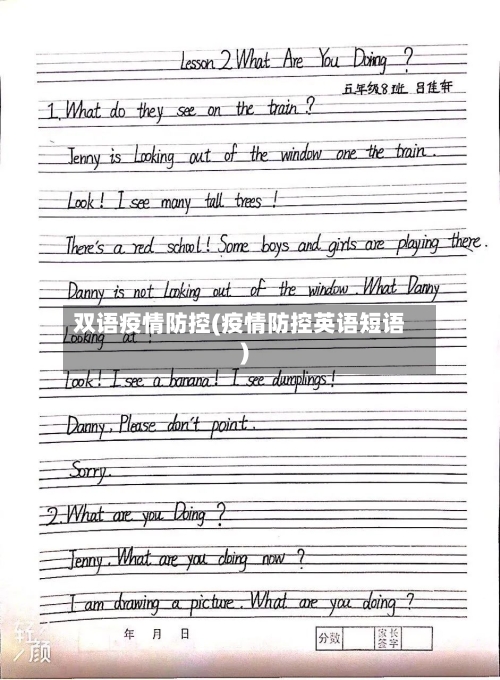 Lesson 2 What Are You Doing ?
五年级8班 吕佳轩
1. What do they see on the train ?
Jenny is Looking out of the window one the train .
Look ! I see many tall trees !
There's a red school ! Some boys and girls are playing there .
Danny is not Looking out of the window What Danny
双语疫情防控(疫情防控英语短语
)
Looking at !
Look ! I see a banana ! I see dumplings !
Danny , Please don't point .
Sorry .
2. What are you Doing ?
Jenny . What are you doing now ?
I am drawing a picture . What are you doing ?
年 月 日
分数
家长
签字
轻
颜